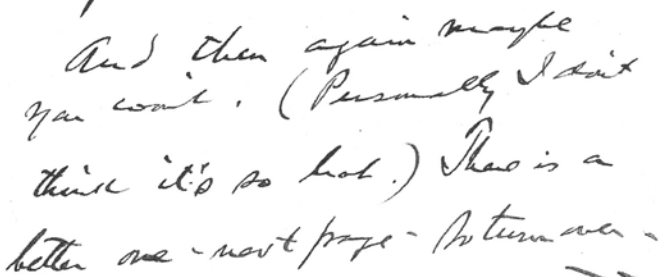 And then again maybe
you won't. (Personally I don't
think it's so hot.) There is a
better one - next page - so turn over -